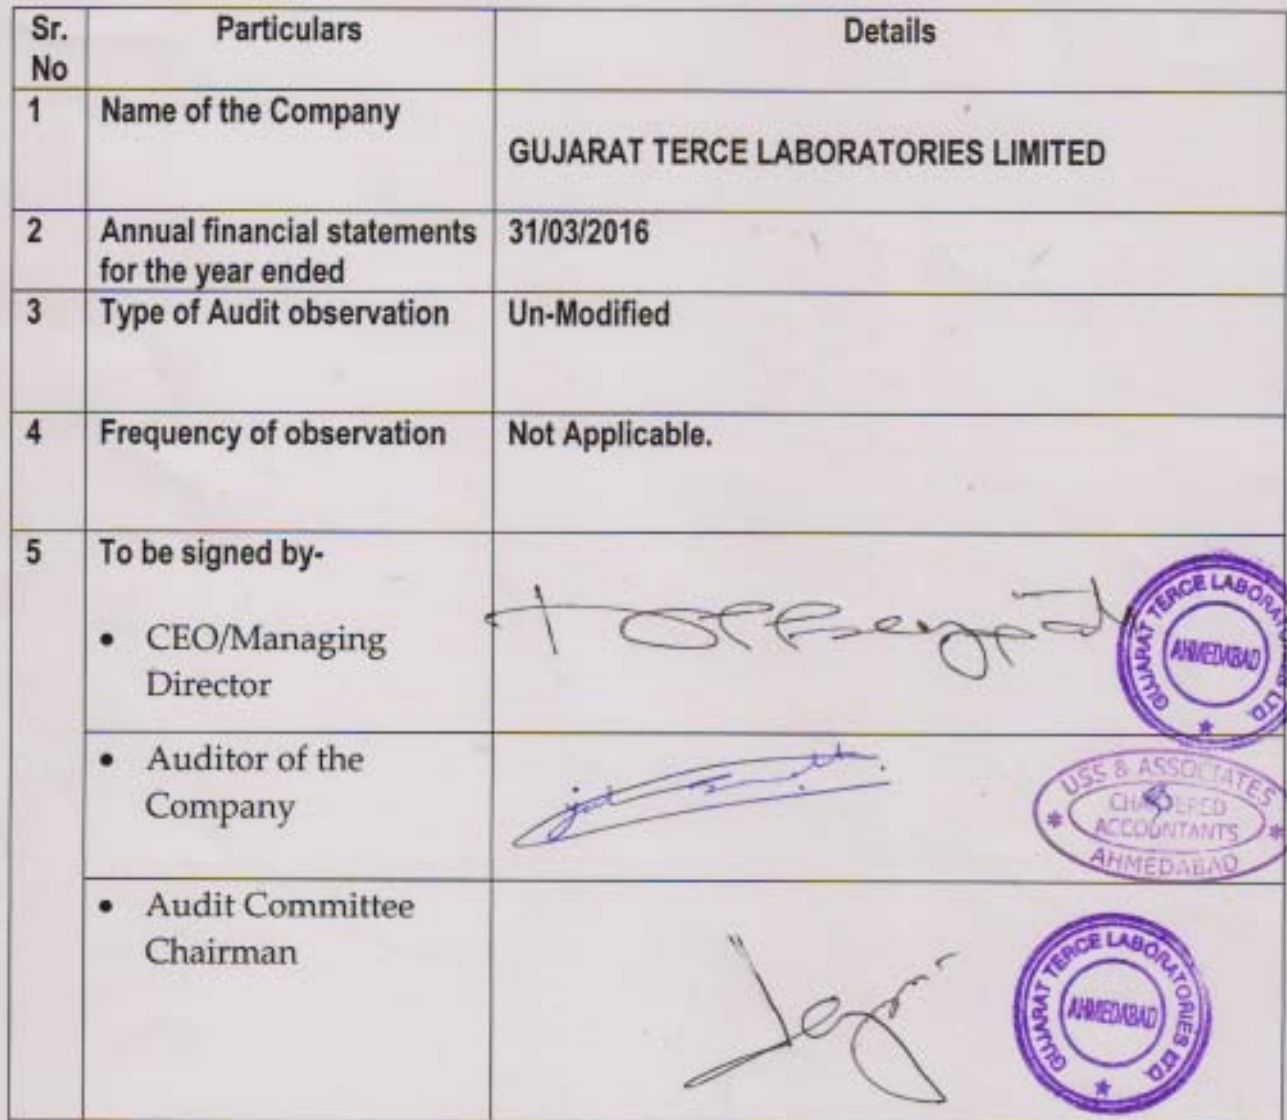 Sr. No
Particulars
Details
1
Name of the Company
GUJARAT TERCE LABORATORIES LIMITED
2
Annual financial statements
for the year ended
31/03/2016
3
Type of Audit observation
Un-Modified
4
Frequency of observation
Not Applicable.
5
To be signed by-
• CEO/Managing
Director
GUJARAT TERCE LABORATORIES LTD.
AHMEDABAD
• Auditor of the
Company
USS & ASSOCIATES
CHARTERED
ACCOUNTANTS
AHMEDABAD
• Audit Committee
Chairman
GUJARAT TERCE LABORATORIES LTD.
AHMEDABAD